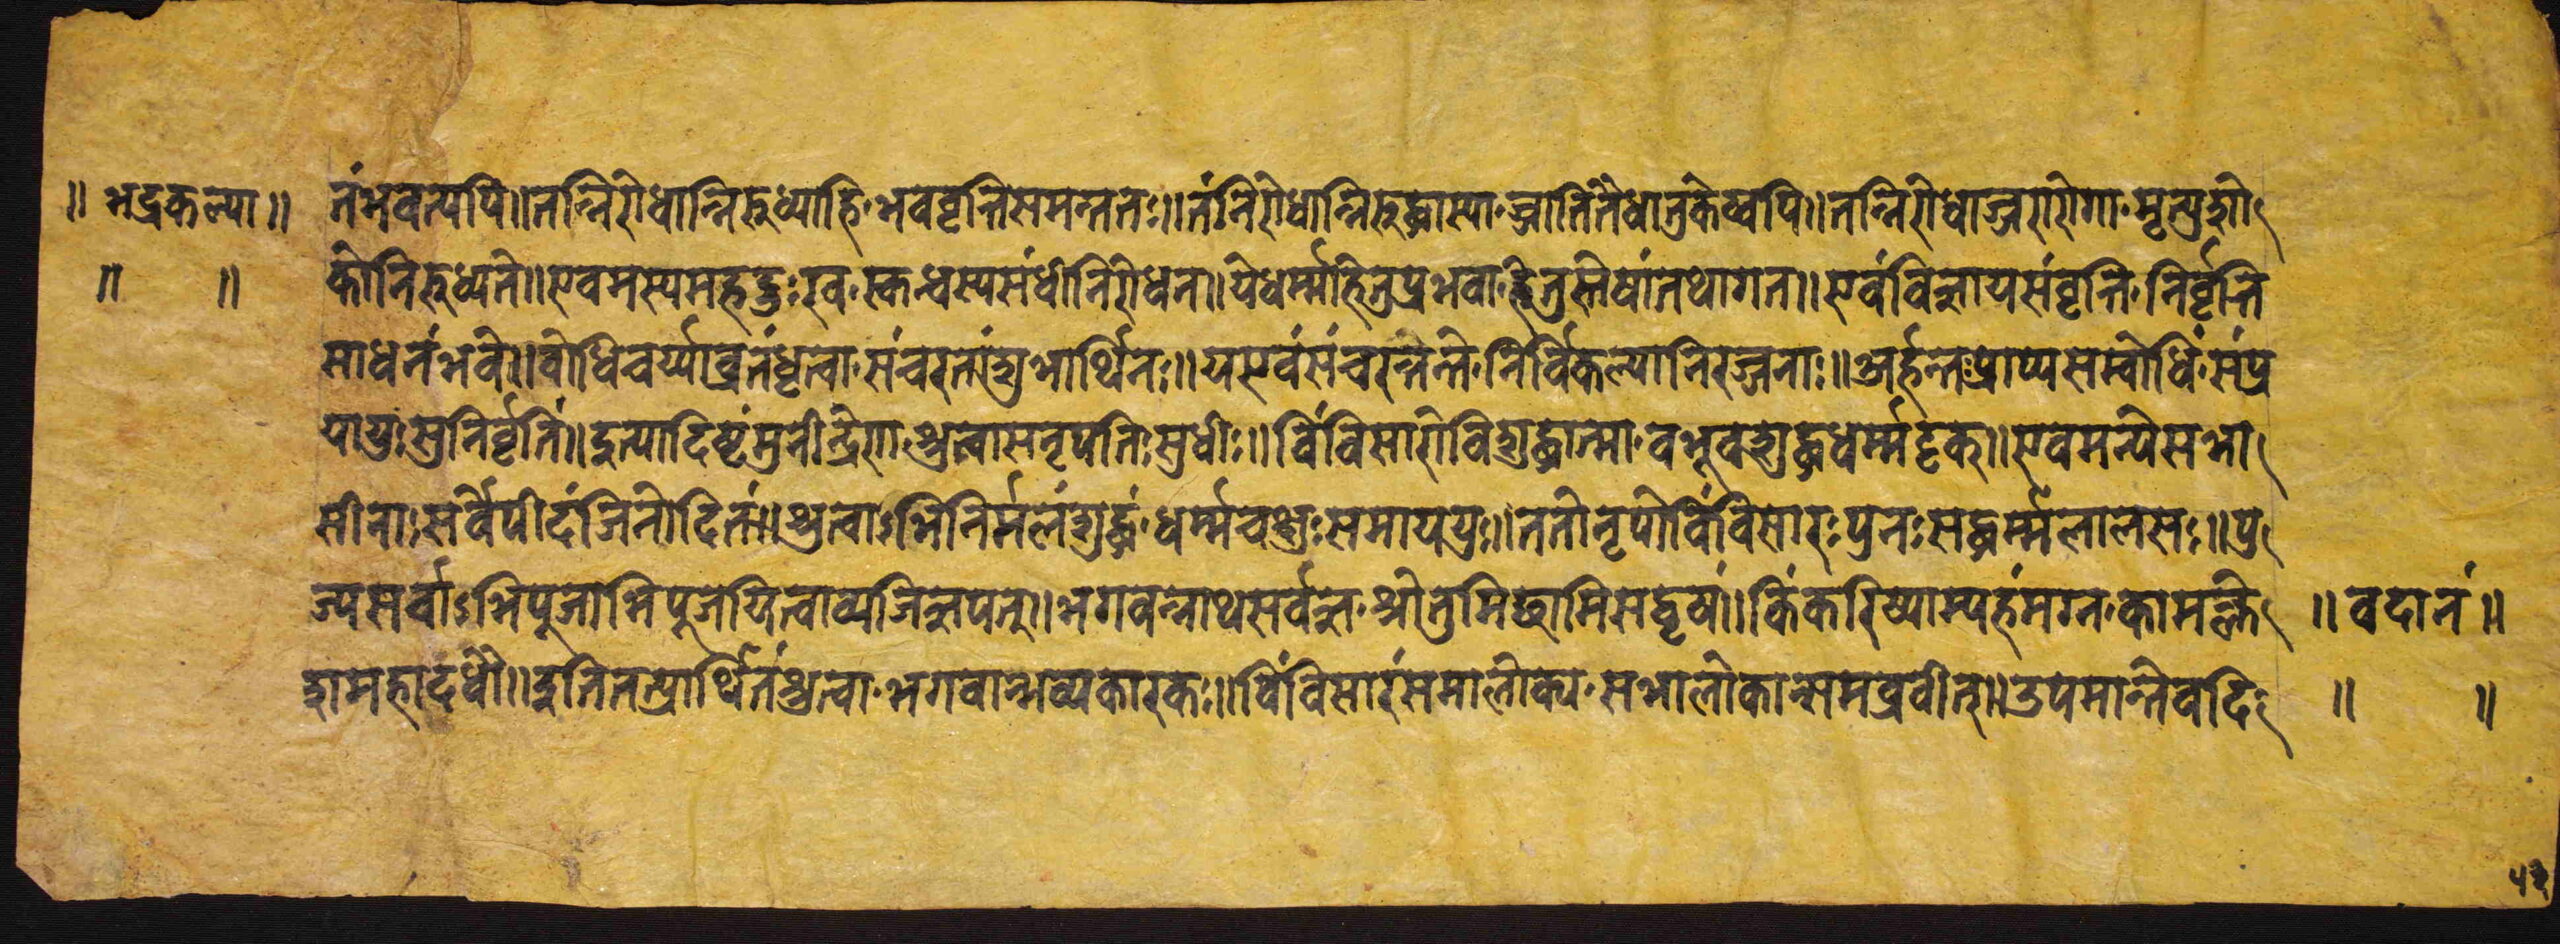 ॥ भद्रकल्पा ॥ नंभवत्यपि॥तन्निरोधान्निरुध्याहि·भववृत्तिसमन्ततः॥तंनिरोधान्निरुद्धास्या·ज्जातिस्त्रैधातुकेष्वपि॥तन्निरोधाज्जरारोगा·मृत्युशो
॥ ॥ कोनिरुध्यते॥एवमस्यमहद्दुःख·स्कन्धस्यसंधीनिरोधन॥येधर्म्माहेतुप्रभवा·हेतुस्तेषांतथागत॥एवंविज्ञायसंवृत्ति·निर्वृत्ति
साधनंभवे॥बोधिचर्य्याव्रतंधृत्वा·संचरतशुभार्थिनः॥यएवंसंचरन्तेन्ते·निर्विकल्पानिरञ्जनाः॥अर्हन्तप्राप्यसम्बोधिं·संप्र
यायुःसुनिर्वृतिं॥इत्यादिष्टंमुनीन्द्रेण·श्रुत्वासनृपतिःसुधीः॥विंविसारोविशुद्धात्मा·वभूवशुद्धधर्म्मदृक्॥एवमन्येसभा
सीनाःसर्वेपीदंजिनोदितं॥श्रुत्वाऽभिनिर्मलंशुद्धं·धर्म्मचक्षुःसमाययुः॥ततोनृपोविंविसारःपुनःसद्धर्म्मलालसः॥पु
ज्यसर्वाऽभिपूजाभिपूजयित्वाव्यजिज्ञपत्॥भगवन्नाथसर्वज्ञ·श्रोतुमिच्छामिसद्वृषं॥किंकरिष्याम्यहंमग्न·कामक्ले ॥ वदानं ॥
शमहादधौ॥इतितत्प्रार्थितंश्रुत्वा·भगवान्भव्यकारकः॥विंविसारंसमालोक्य·सभालोकान्समव्रवीत्॥उपमान्तेवदि ॥ ॥
५२